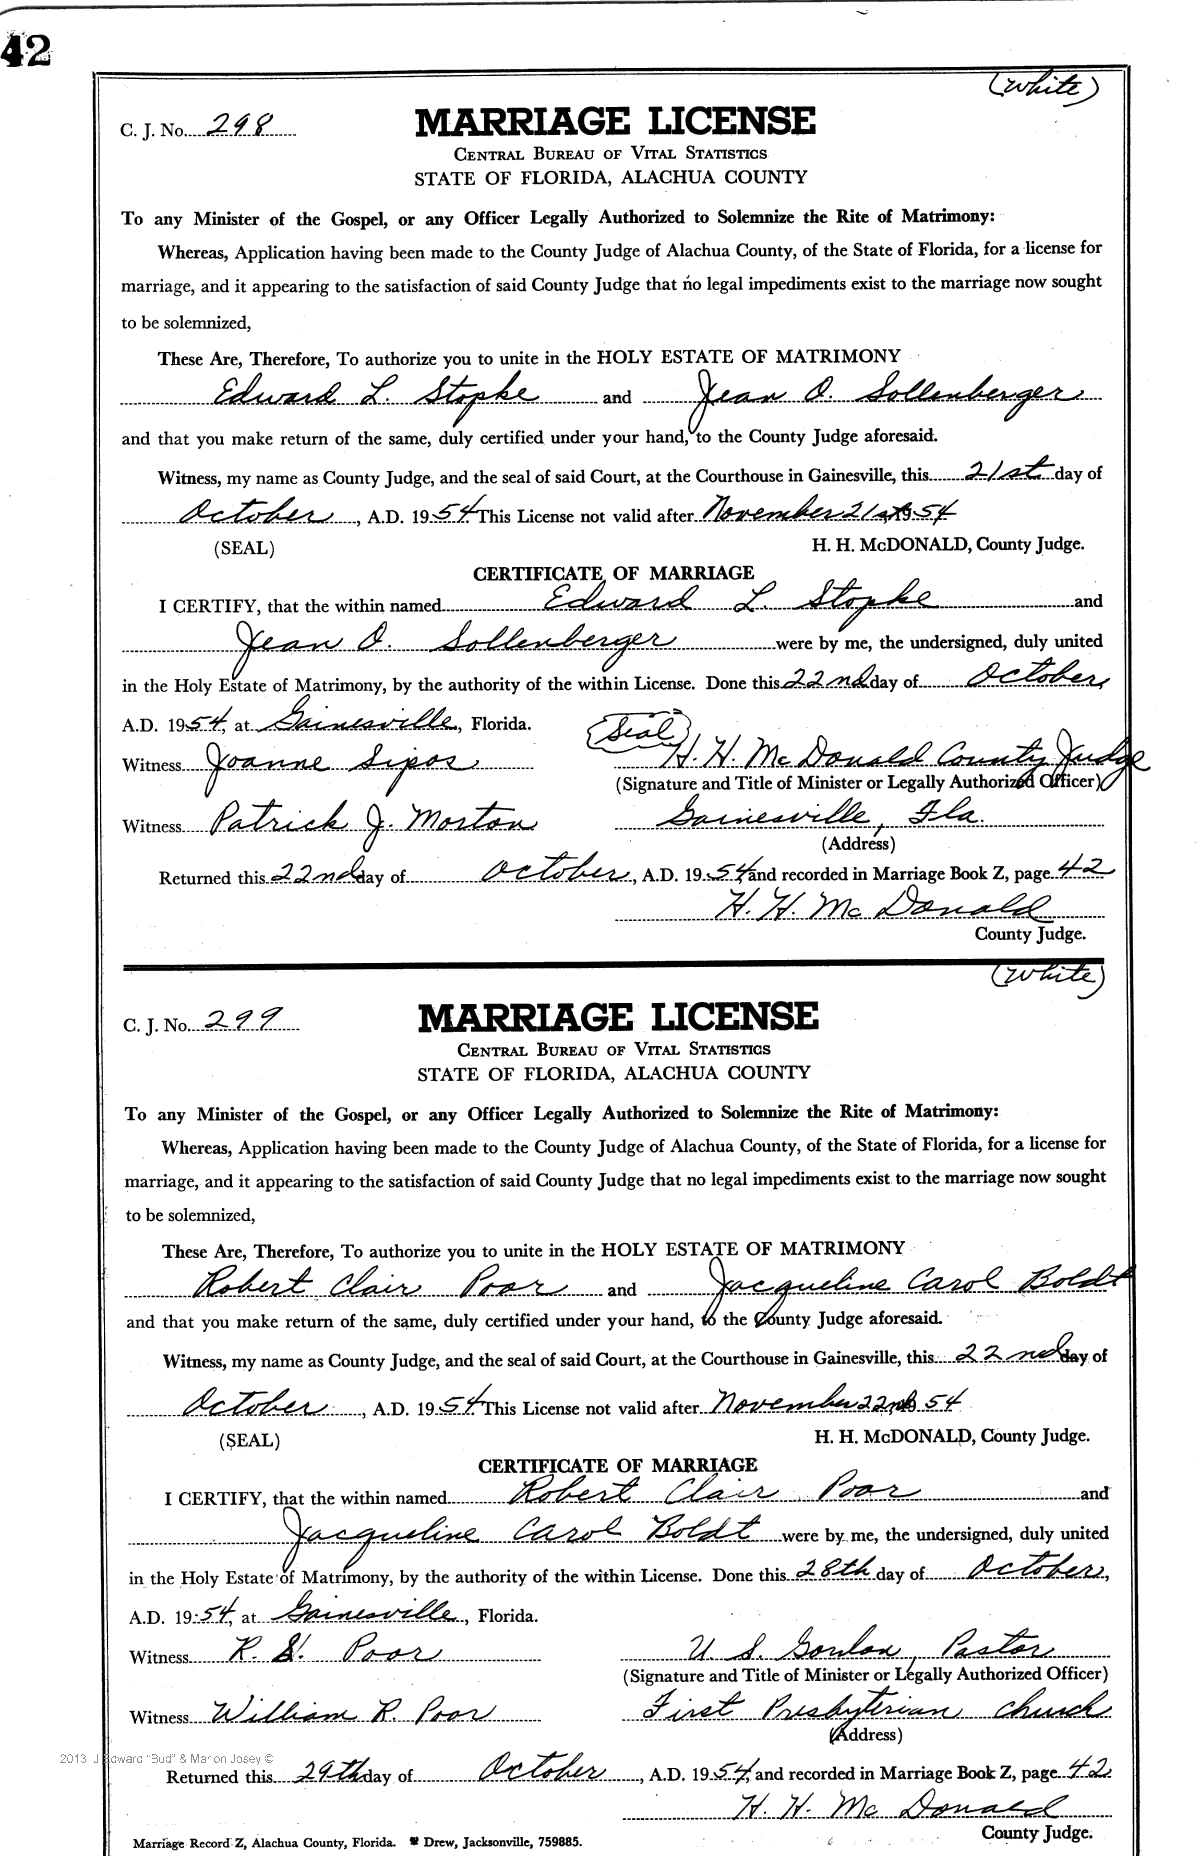 42
(White)
C. J. No. 298
MARRIAGE LICENSE
CENTRAL BUREAU OF VITAL STATISTICS
STATE OF FLORIDA, ALACHUA COUNTY
To any Minister of the Gospel, or any Officer Legally Authorized to Solemnize the Rite of Matrimony:
Whereas, Application having been made to the County Judge of Alachua County, of the State of Florida, for a license for
marriage, and it appearing to the satisfaction of said County Judge that no legal impediments exist to the marriage now sought
to be solemnized,
These Are, Therefore, To authorize you to unite in the HOLY ESTATE OF MATRIMONY
Edward L. Stopke and Jean O. Sollenberger
and that you make return of the same, duly certified under your hand, to the County Judge aforesaid.
Witness, my name as County Judge, and the seal of said Court, at the Courthouse in Gainesville, this 21st day of
October, A.D. 1954. This License not valid after November 21st, 1954
(SEAL) H. H. McDONALD, County Judge.
CERTIFICATE OF MARRIAGE
I CERTIFY, that the within named Edward L. Stopke and
Jean O. Sollenberger were by me, the undersigned, duly united
in the Holy Estate of Matrimony, by the authority of the within License. Done this 22nd day of October,
A.D. 1954, at Gainesville, Florida. (Seal)
Witness Joanne Sipos H. H. McDonald County Judge
(Signature and Title of Minister or Legally Authorized Officer)
Witness Patrick J. Morton Gainesville, Fla.
(Address)
Returned this 22nd day of October, A.D. 1954, and recorded in Marriage Book Z, page 42
H. H. McDonald
County Judge.
(White)
C. J. No. 299
MARRIAGE LICENSE
CENTRAL BUREAU OF VITAL STATISTICS
STATE OF FLORIDA, ALACHUA COUNTY
To any Minister of the Gospel, or any Officer Legally Authorized to Solemnize the Rite of Matrimony:
Whereas, Application having been made to the County Judge of Alachua County, of the State of Florida, for a license for
marriage, and it appearing to the satisfaction of said County Judge that no legal impediments exist to the marriage now sought
to be solemnized,
These Are, Therefore, To authorize you to unite in the HOLY ESTATE OF MATRIMONY
Robert Clair Poor and Jacqueline Carol Boldt
and that you make return of the same, duly certified under your hand, to the County Judge aforesaid.
Witness, my name as County Judge, and the seal of said Court, at the Courthouse in Gainesville, this 22nd day of
October, A.D. 1954. This License not valid after November 22nd, 1954
(SEAL) H. H. McDONALD, County Judge.
CERTIFICATE OF MARRIAGE
I CERTIFY, that the within named Robert Clair Poor and
Jacqueline Carol Boldt were by me, the undersigned, duly united
in the Holy Estate of Matrimony, by the authority of the within License. Done this 28th day of October,
A.D. 1954, at Gainesville, Florida.
Witness R. Poor U. S. Gordon, Pastor
(Signature and Title of Minister or Legally Authorized Officer)
Witness William R. Poor First Presbyterian Church
(Address)
2013 J Edward "Bud" & Marion Josey ©
Returned this 29th day of October, A.D. 1954, and recorded in Marriage Book Z, page 42
H. H. McDonald
County Judge.
Marriage Record Z, Alachua County, Florida. Drew, Jacksonville, 759885.